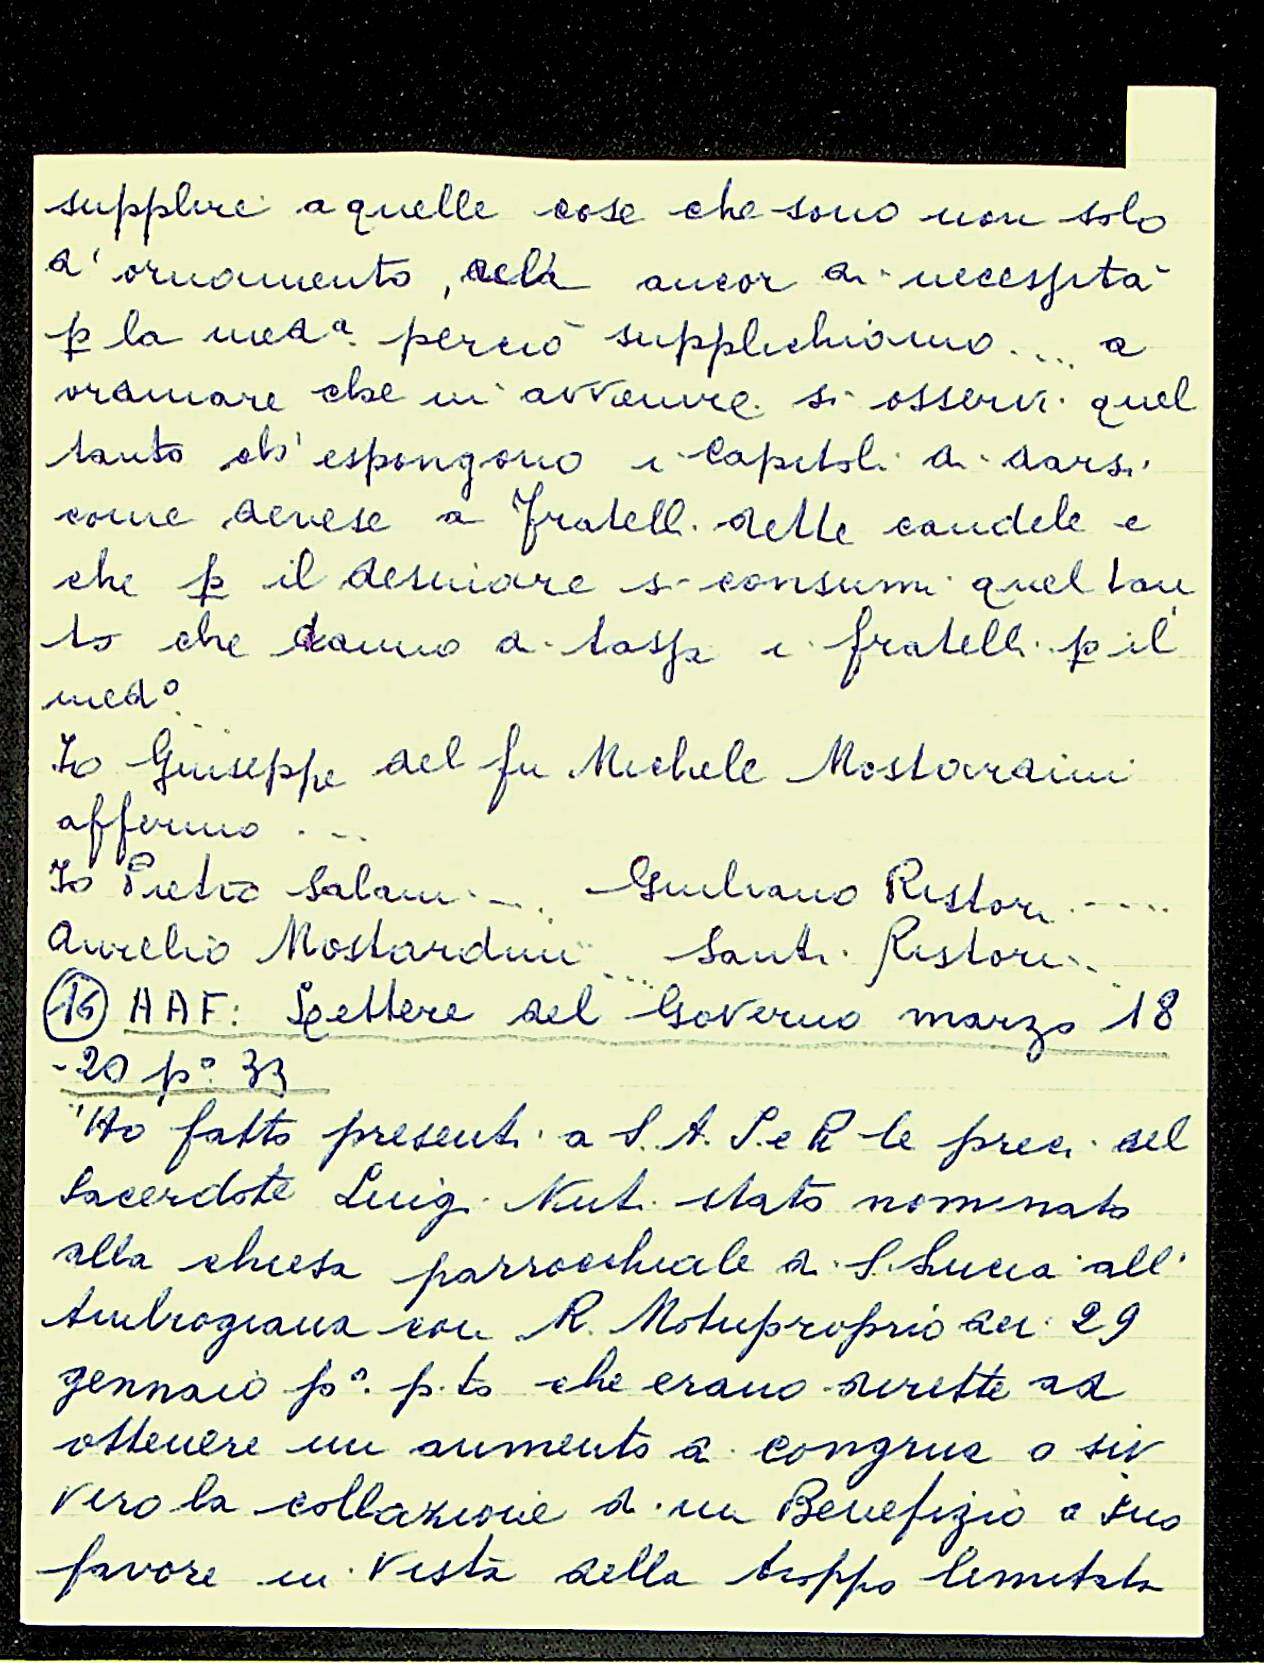 supplire a quelle cose che sono non solo
d'ornamento, ancor di necessità
p la med.a perciò supplichiamo .... a
ordinare che in avvenire si osservi quel
tanto ch'espongono i Capitoli di darsi
come devese a Fratelli dette candele e
che p il desinare si consumi quel tan
to che danno di tassa i fratelli p il
med.o
Io Giuseppe del fu Michele Mostardini
affermo ...
Io Pietro Salani ... Giuliano Ristori .....
Aurelio Mostardini ... Santi Ristori ..
AAF: Lettere del Governo marzo 18
-20 p.o 33
"Ho fatto presenti a S. A. I. e R le preci del
Sacerdote Luigi Nuti stato nominato
alla chiesa parrocchiale di S. Lucia all'
Ambrogiana con R. Motuproprio dei 29
gennaio p.o p.to che erano dirette ad
ottenere un aumento di congrua o siv
vero la collazione di un Benefizio a suo
favore in vista della troppo limitata